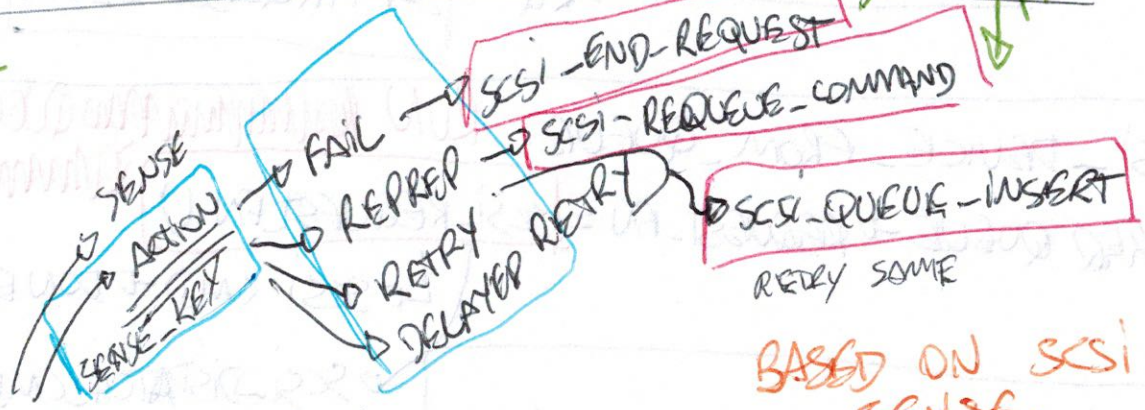 SENSE
ACTION
SENSE_KEY
FAIL
REPREP
RETRY
DELAYED RETRY
SCSI_END_REQUEST
SCSI_REQUEUE_COMMAND
SCSI_QUEUE_INSERT
RETRY SAME
BASED ON SCSI
SENSE